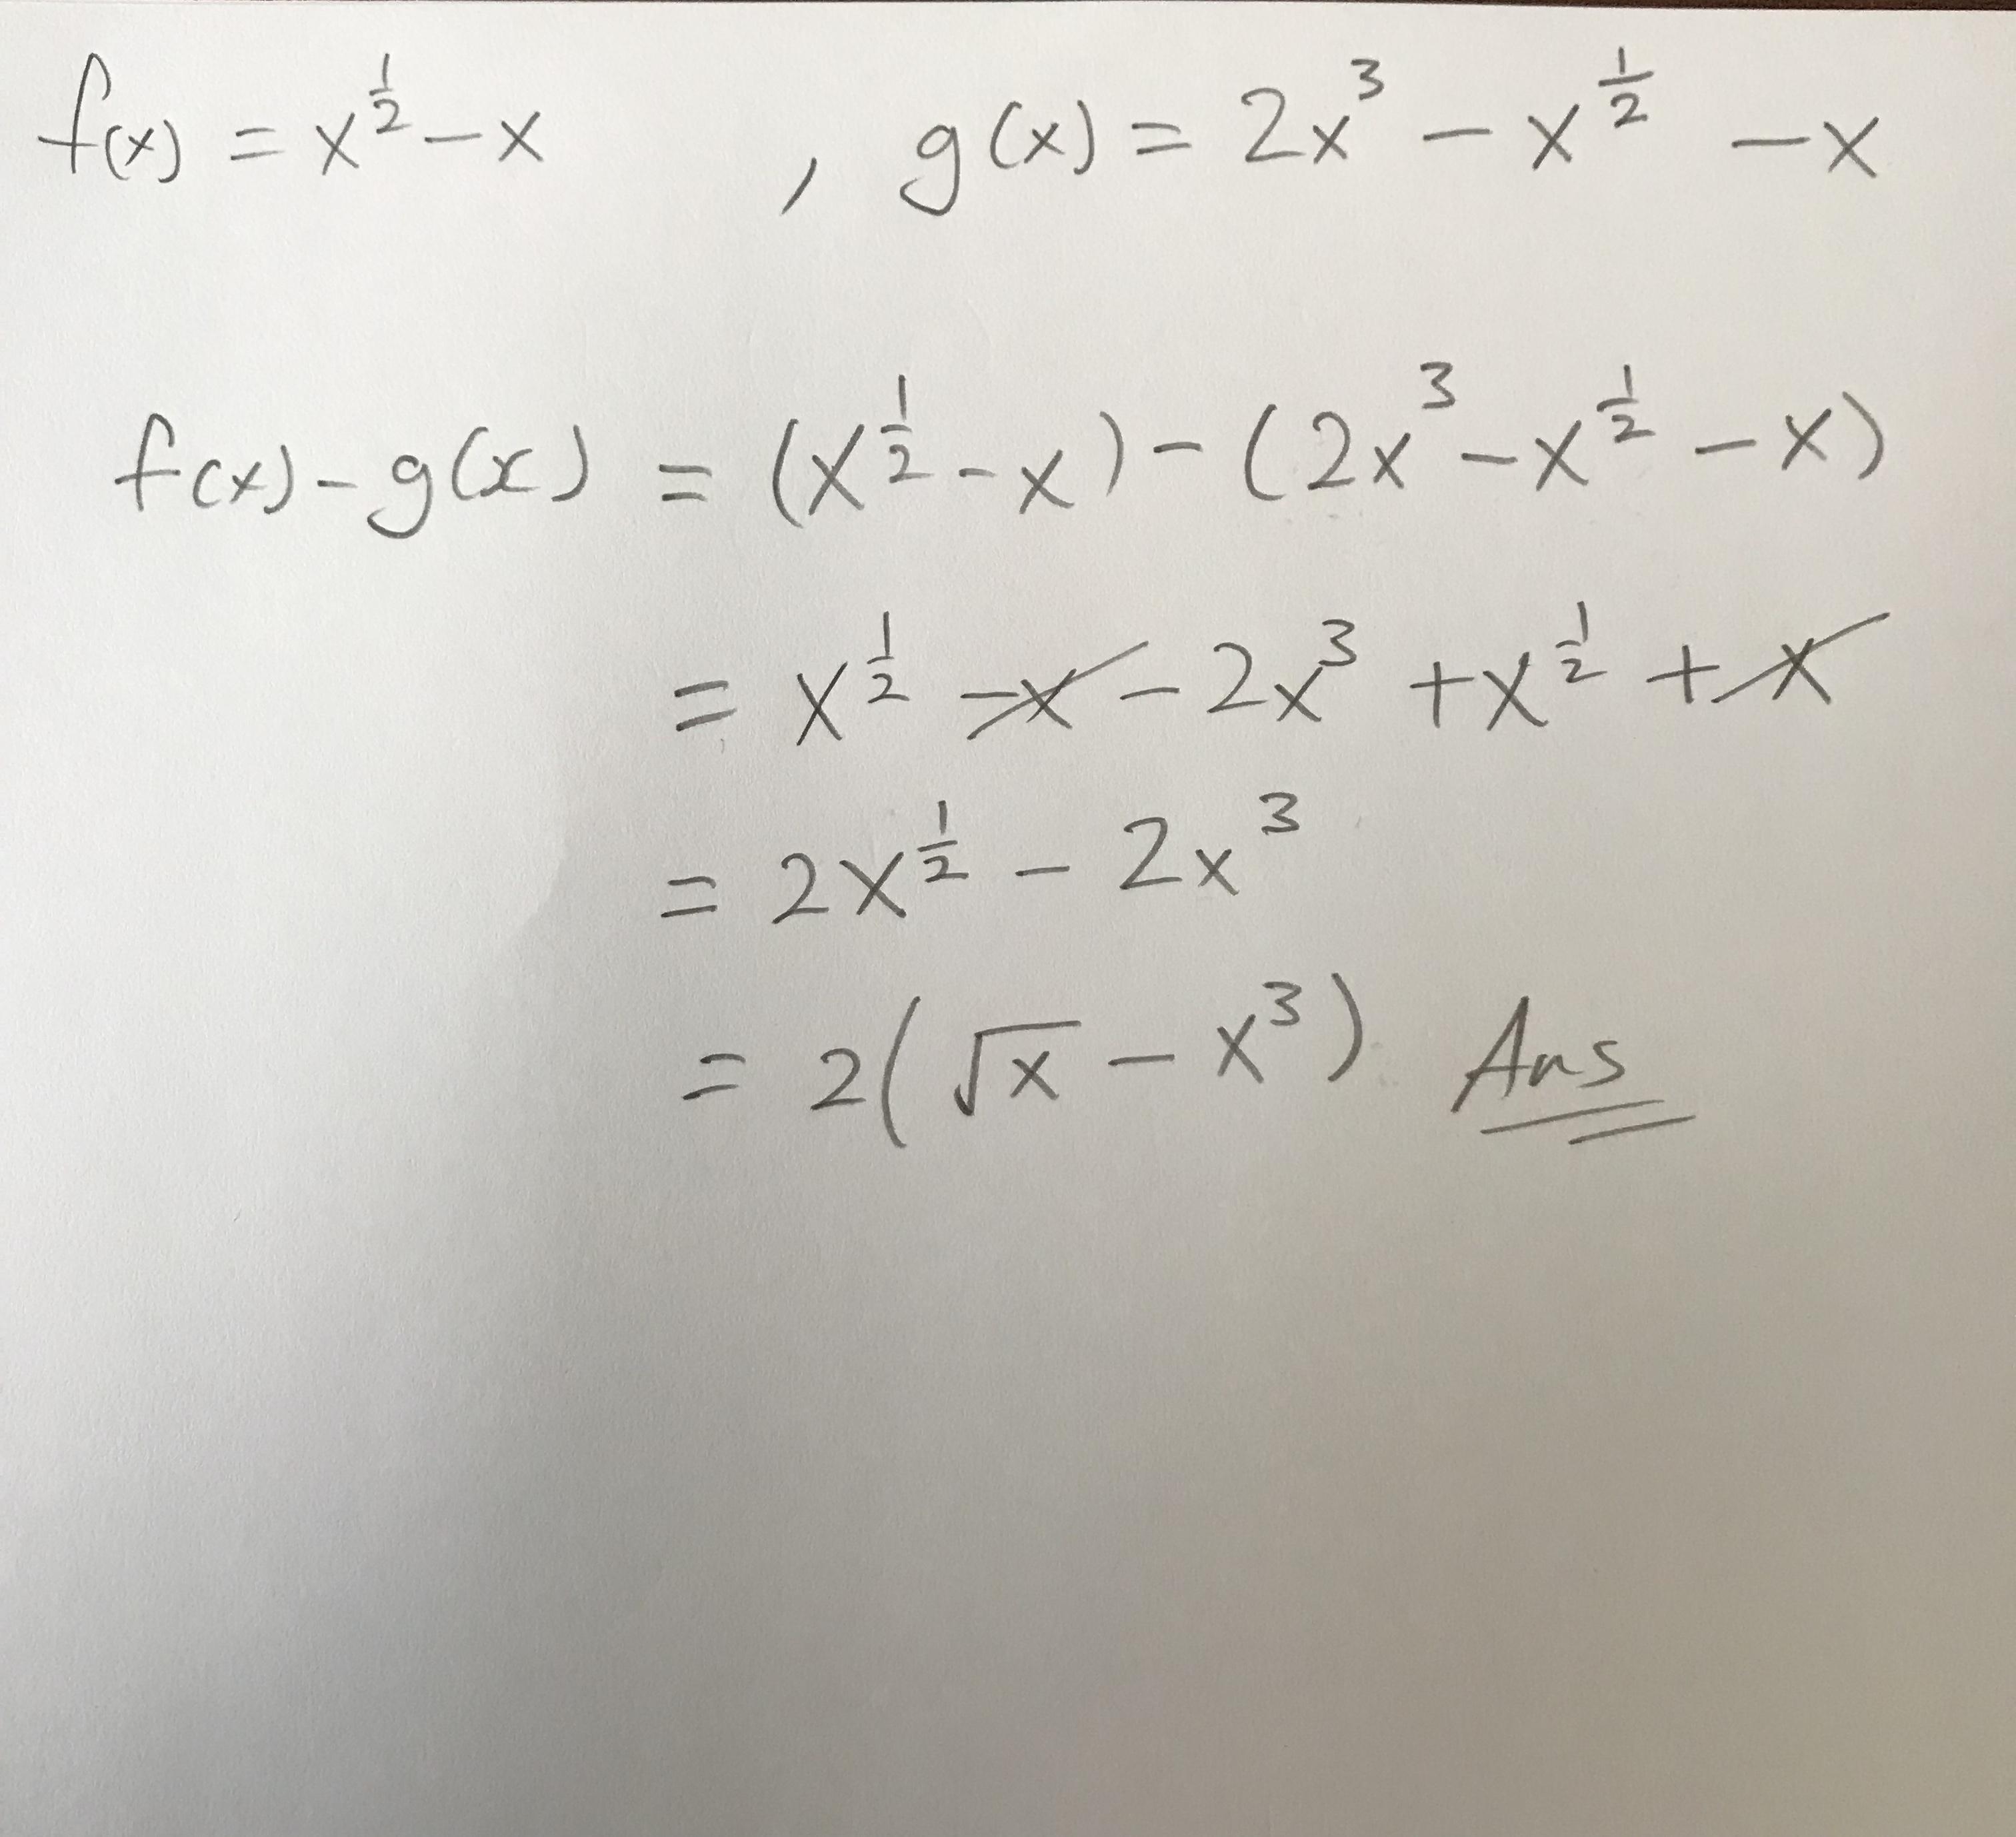 f(x) = x^{1/2} - x , g(x) = 2x^3 - x^{1/2} - x
f(x) - g(x) = (x^{1/2} - x) - (2x^3 - x^{1/2} - x)
= x^{1/2} - x - 2x^3 + x^{1/2} + x
= 2x^{1/2} - 2x^3
= 2(√x - x^3) Ans